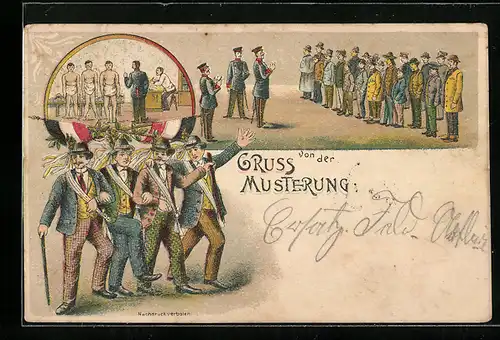 GRUSS von der
MUSTERUNG:
Ersatz. Feld.
Nachdruck verboten